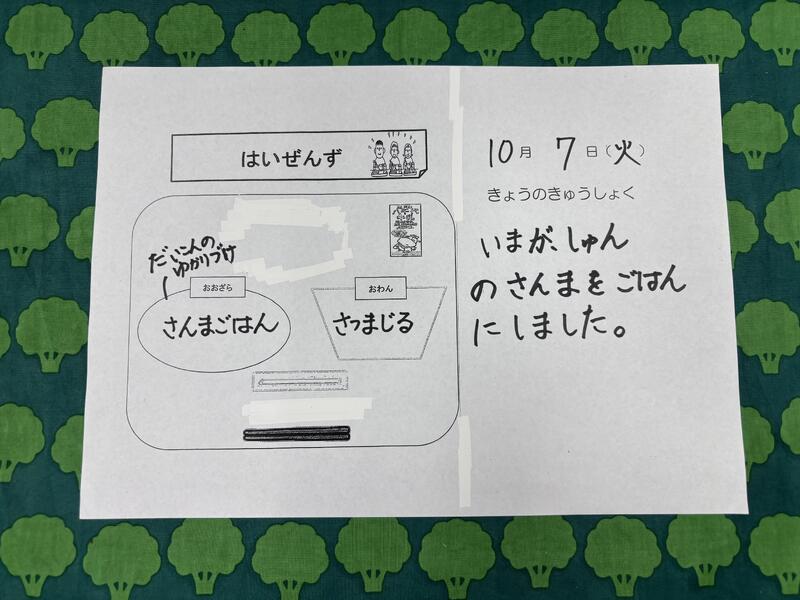 はいぜんず
だいこんの
ゆかりづけ
おおざら
さんまごはん
おわん
さつまじる
10月7日(火)
きょうのきゅうしょく
いまが、しゅん
のさんまをごはん
にしました。